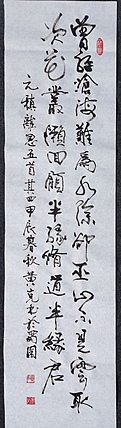 曾经滄海難為水除卻巫山不是雲取
次花叢懶回顧半緣脩道半緣君
元稹離思五首其四甲辰春秋黄克光於蜀園